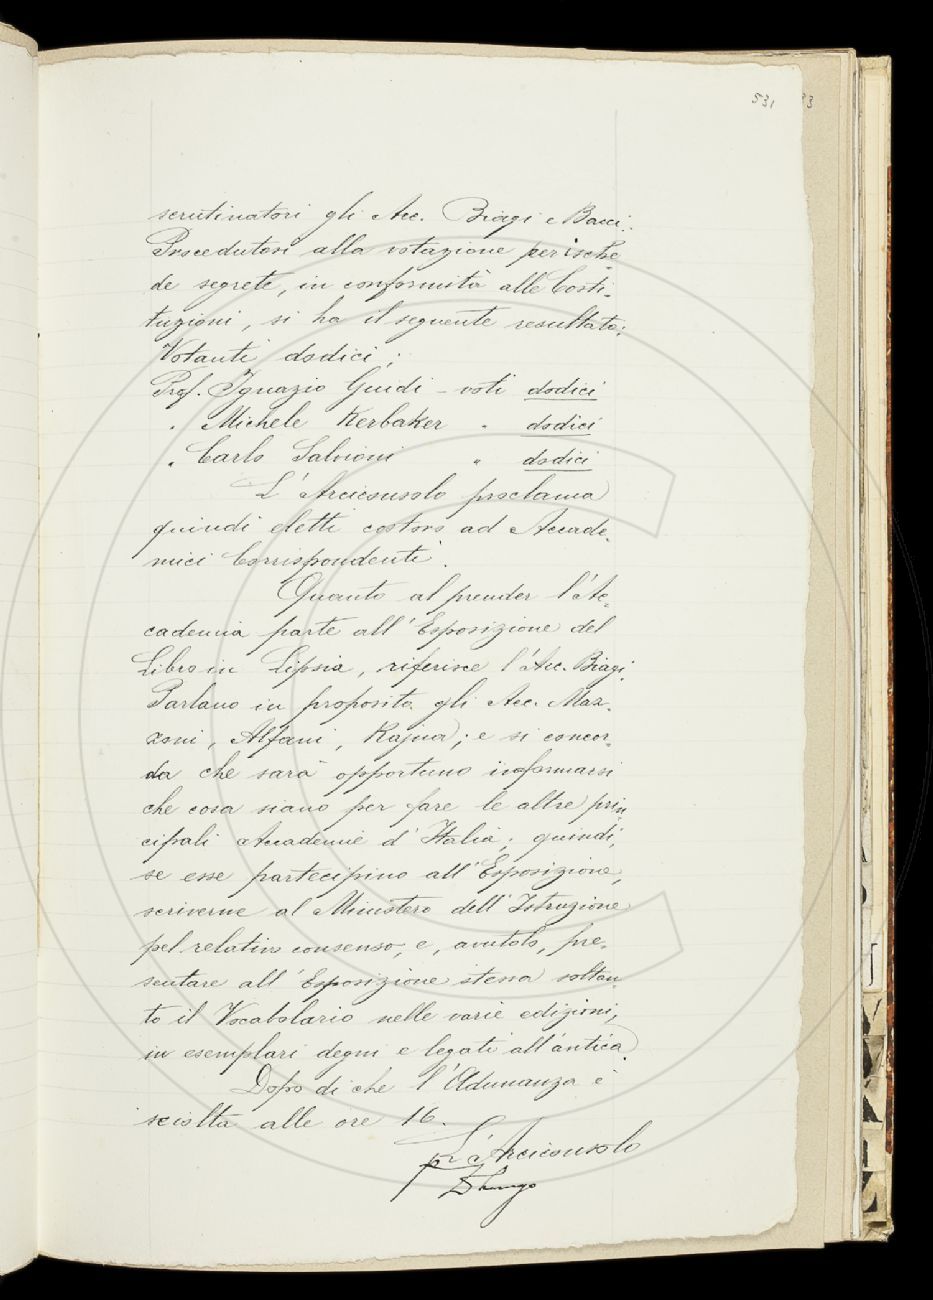 531
33
scrutinatori gli Acc. Biagi e Bacci.
Procedutosi alla votazione per ische
de segrete, in conformità alle Costi-
tuzioni, si ha il seguente resultato:
Votanti dodici;
Prof. Ignazio Guidi - voti dodici
" Michele Kerbaker " dodici
" Carlo Salvioni " dodici
L'Arciconsolo proclama
quindi eletti costoro ad Accade-
mici Corrispondenti.
Quanto al prender l'Ac-
cademia parte all'Esposizione del
Libro in Lipsia, riferisce l'Acc. Biagi.
Parlano in proposito gli Acc. Maz-
zoni, Alfani, Rajna; e si concor-
da che sarà opportuno informarsi
che cosa siano per fare le altre prin
cipali Accademie d'Italia; quindi,
se esse partecipino all'Esposizione,
scriverne al Ministero dell'Istruzione
pel relativo consenso, e, avutolo, pre-
sentare all'Esposizione stessa soltan-
to il Vocabolario nelle varie edizioni,
in esemplari degni e legati all'antica.
Dopo di che l'Adunanza è
sciolta alle ore 16.
L'Arciconsolo